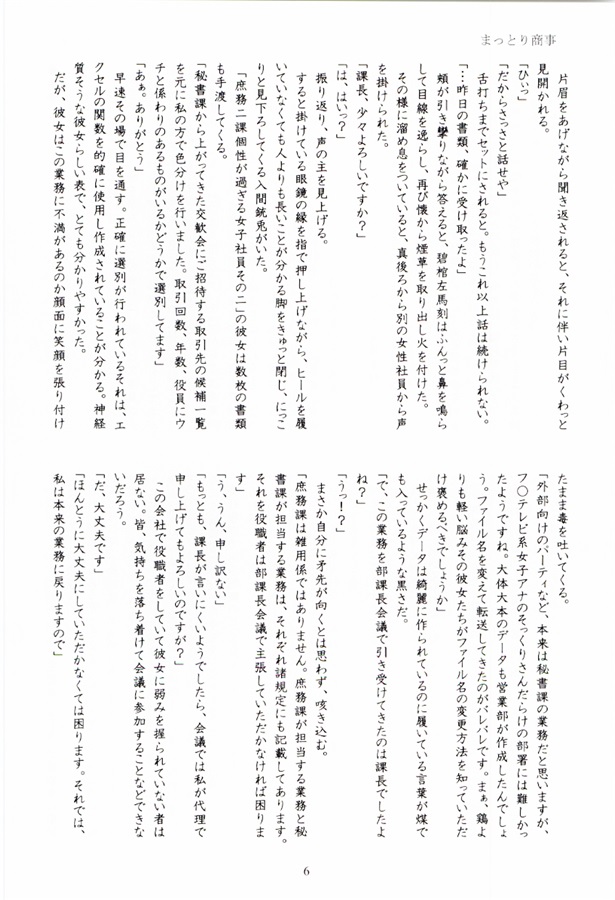 まっとり商事
片眉をあげながら聞き返されると、それに伴い片目がくわっと
見開かれる。
「ひぃっ」
「だからさっさと話せや」
舌打ちまでセットにされると。もうこれ以上話は続けられない。
「…昨日の書類、確かに受け取ったよ」
頬が引き攣りながら答えると、碧棺左馬刻はふんっと鼻を鳴ら
して目線を逸らし、再び懐から煙草を取り出し火を付けた。
その様に溜め息をついていると、真後ろから別の女性社員から声
を掛けられた。
「課長、少々よろしいですか？」
「は、はいっ？」
振り返り、声の主を見上げる。
すると掛けている眼鏡の縁を指で押し上げながら、ヒールを履
いていなくても人よりも長いことが分かる脚をきゅっと閉じ、にっこ
りと見下ろしてくる入間銃兎がいた。
「庶務二課個性が過ぎる女子社員その二」の彼女は数枚の書類
も手渡してくる。
「秘書課から上がってきた交歓会にご招待する取引先の候補一覧
を元に私の方で色分けを行いました。取引回数、年数、役員にウ
チと係わりのあるものがいるかどうかで選別してます」
「あぁ。ありがとう」
早速その場で目を通す。正確に選別が行われているそれは、エ
クセルの関数を的確に使用し作成されていることが分かる。神経
質そうな彼女らしい表で、とても分かりやすかった。
だが、彼女はこの業務に不満があるのか顔面に笑顔を張り付け
たまま毒を吐いてくる。
「外部向けのパーティなど、本来は秘書課の業務だと思いますが、
フ〇テレビ系女子アナのそっくりさんだらけの部署には難しかっ
たようですね。大体大本のデータも営業部が作成したんでしょ
う。ファイル名を変えて転送してきたのがバレバレです。まぁ、鶏よ
りも軽い脳みその彼女たちがファイル名の変更方法を知っていただ
け褒めるべきでしょうか」
せっかくデータは綺麗に作られているのに履いている言葉が煤で
も入っているような黒さだ。
「で、この業務を部課長会議で引き受けてきたのは課長でしたよ
ね？」
「うっ！？」
まさか自分に矛先が向くとは思わず、咳き込む。
「庶務課は雑用係ではありません。庶務課が担当する業務と秘
書課が担当する業務は、それぞれ諸規定にも記載してあります。
それを役職者は部課長会議で主張していただかなければ困りま
す」
「う、うん、申し訳ない」
「もっとも、課長が言いにくいようでしたら、会議では私が代理で
申し上げてもよろしいのですが？」
この会社で役職者をしていて彼女に弱みを握られていない者は
居ない。皆、気持ちを落ち着けて会議に参加することなどできな
いだろう。
「だ、大丈夫です」
「ほんとうに大丈夫にしていただかなくては困ります。それでは、
私は本来の業務に戻りますので」
6